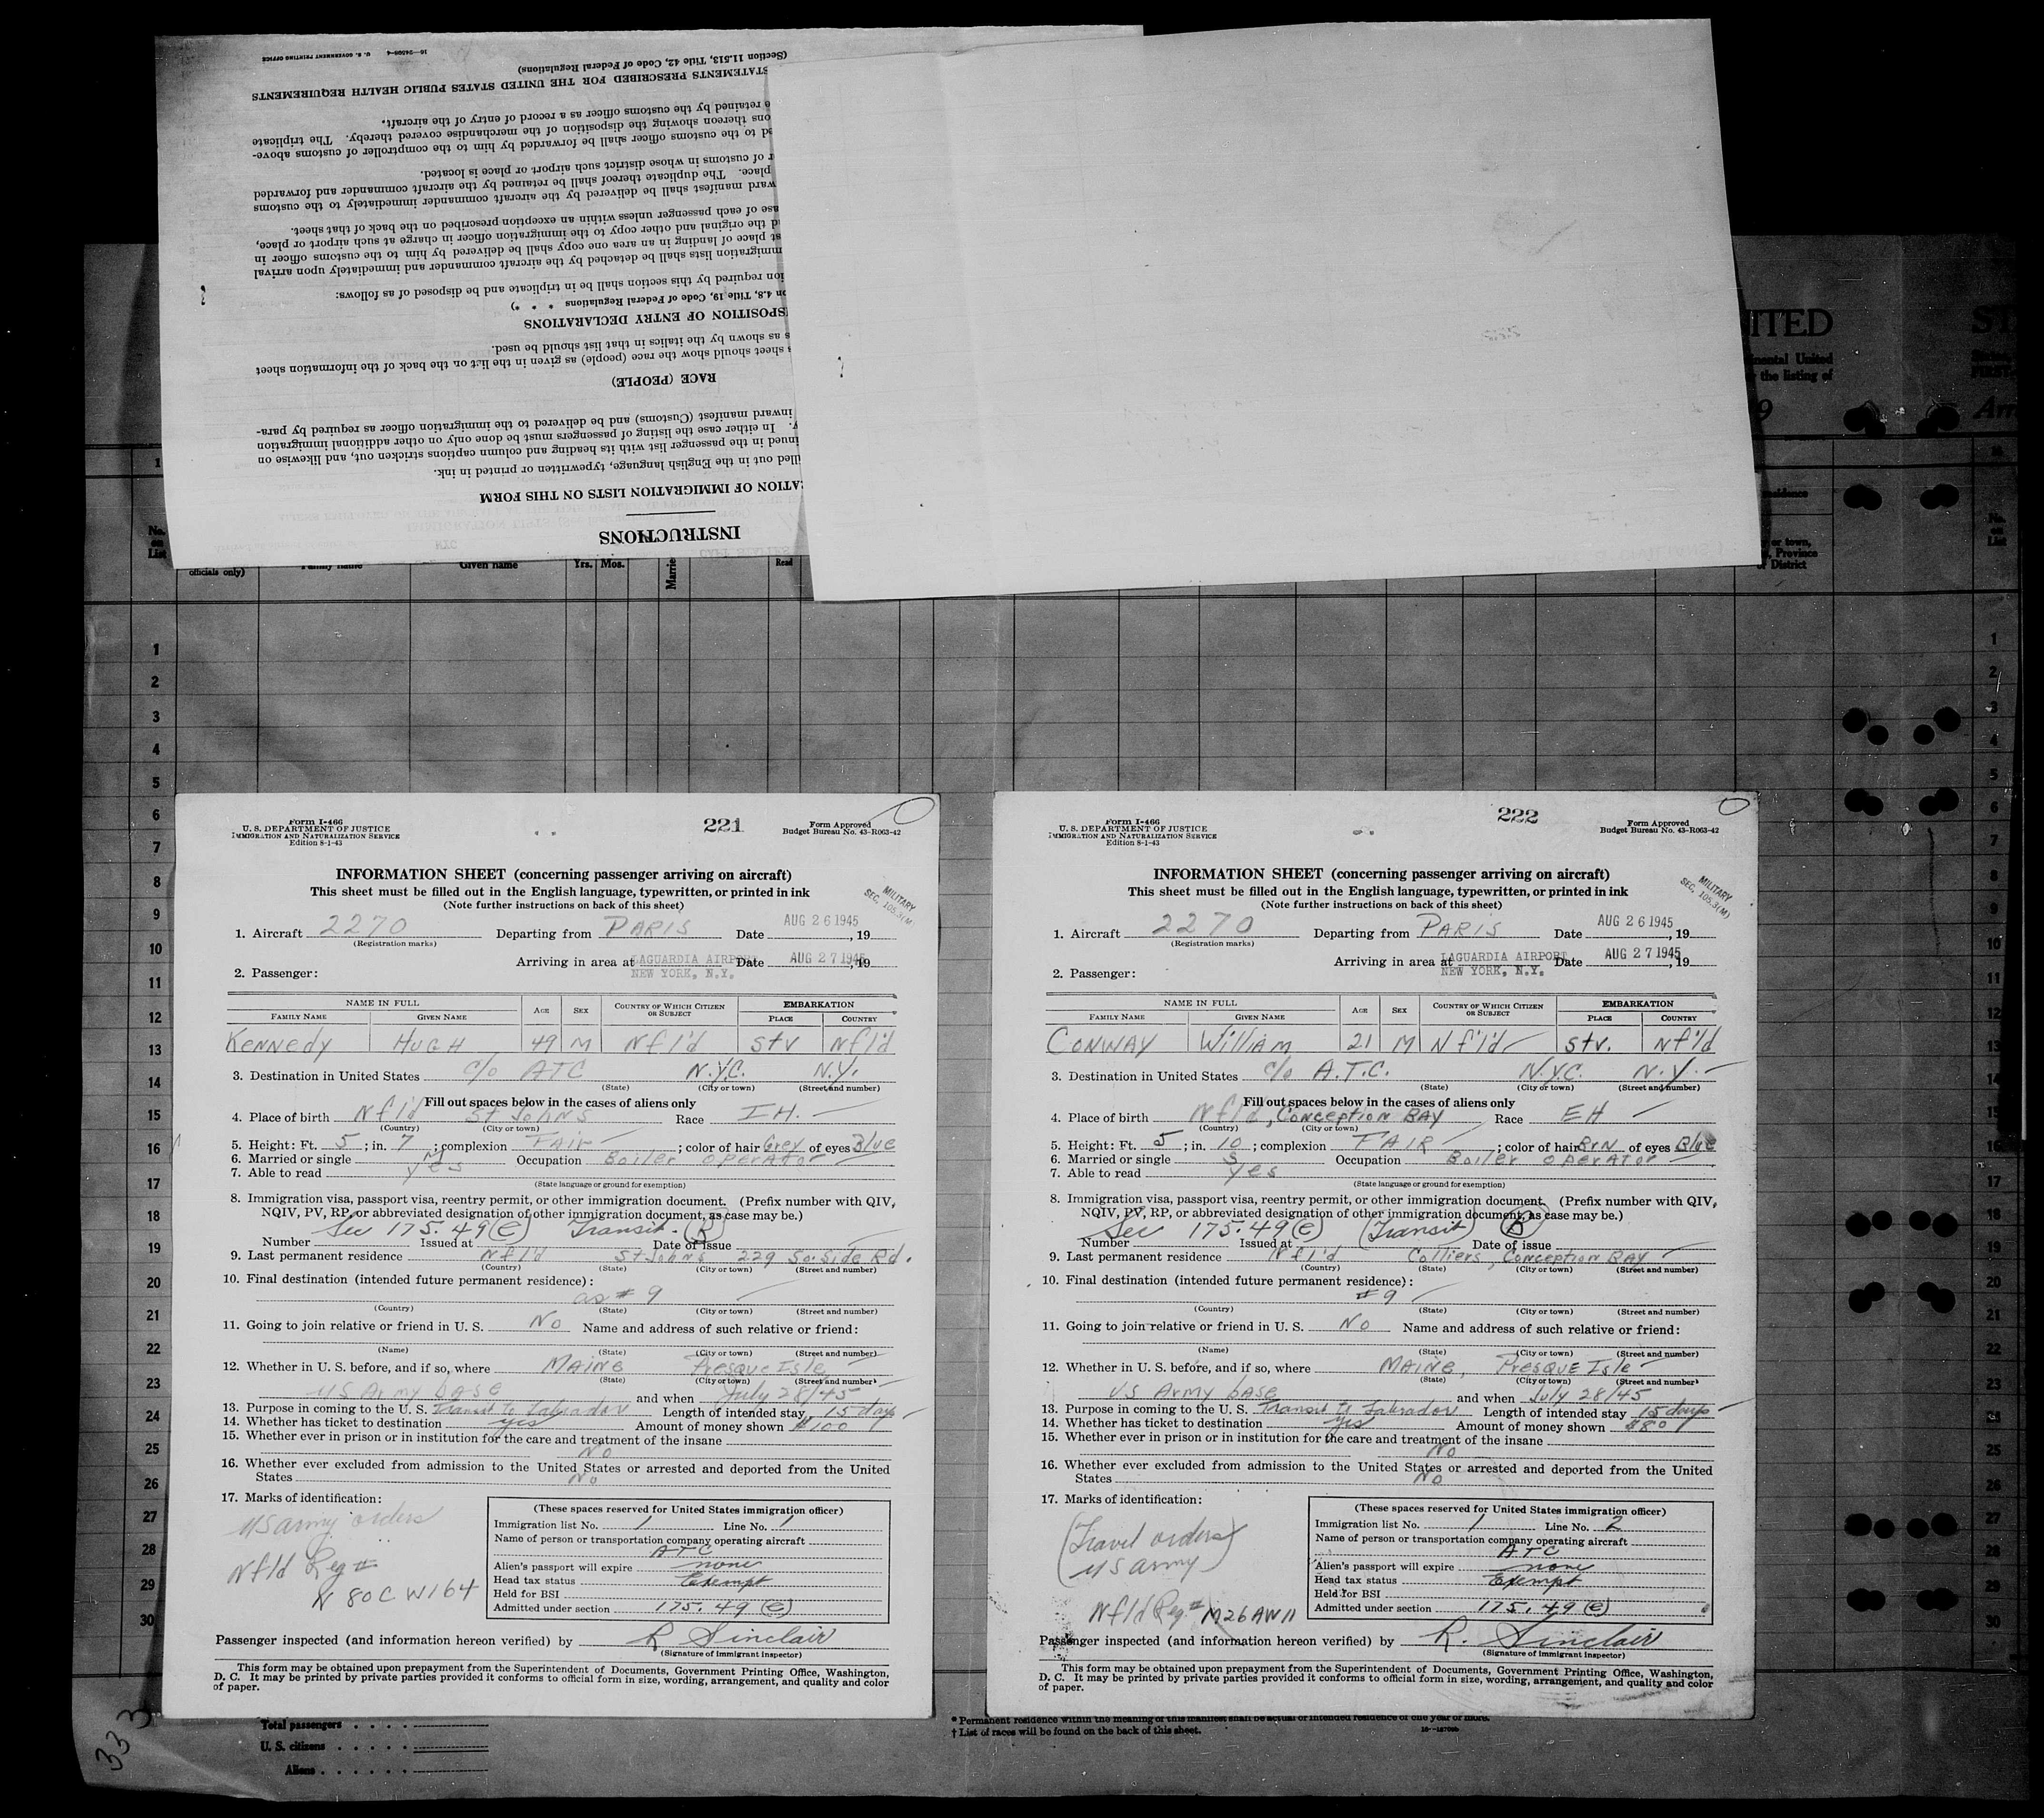 INSTRUCTIONS
CATION OF IMMIGRATION LISTS ON THIS FORM
illed out in the English language, typewritten or printed in ink.
inued in the passenger list with its heading and column captions stricken out, and likewise on
y. In either case the listing of passengers must be done only on other additional immigration
inward manifest (Customs) and be delivered to the immigration officer as required by para-
RACE (PEOPLE)
s sheet should show the race (people) as given in the list on the back of the information sheet
s as shown by the italics in that list should be used.
ISPOSITION OF ENTRY DECLARATIONS
on 4.8, Title 19, Code of Federal Regulations * * *)
ion required by this section shall be in triplicate and be disposed of as follows:
mmigration lists shall be detached by the aircraft commander and immediately upon arrival
st place of landing in an area one copy shall be delivered by him to the customs officer in
d the original and other copy to the immigration officer in charge at such airport or place,
ase of each passenger unless within an exception prescribed on the back of that sheet.
ward manifest shall be delivered by the aircraft commander immediately to the customs
place. The duplicate thereof shall be retained by the aircraft commander and forwarded
r of customs in whose district such airport or place is located.
ed to the customs officer shall be forwarded by him to the comptroller of customs above-
ons thereon showing the disposition of the merchandise covered thereby. The triplicate
e retained by the customs officer as a record of entry of the aircraft.
STATEMENTS PRESCRIBED FOR THE UNITED STATES PUBLIC HEALTH REQUIREMENTS
(Section 11.513, Title 42, Code of Federal Regulations)
U. S. GOVERNMENT PRINTING OFFICE
ITED
inental United
the listing of
No. on List
officials only) Family name Given name Yrs. Mos. Marrie Read
or town, Province or District
No. on List
1
2
3
4
5
6
7
8
9
10
11
12
13
14
15
16
17
18
19
20
21
22
23
24
25
26
27
28
29
30
Form I-466
U. S. DEPARTMENT OF JUSTICE
IMMIGRATION AND NATURALIZATION SERVICE
Edition 8-1-43
221
Form Approved
Budget Bureau No. 43-R063-42
INFORMATION SHEET (concerning passenger arriving on aircraft)
This sheet must be filled out in the English language, typewritten, or printed in ink
(Note further instructions on back of this sheet)
MILITARY
SEC. 105.3(M)
1. Aircraft 2270 Departing from PARIS Date AUG 26 1945, 19
(Registration marks)
Arriving in area at LAGUARDIA AIRPORT NEW YORK, N.Y. Date AUG 27 1945, 19
2. Passenger:
NAME IN FULL AGE SEX COUNTRY OF WHICH CITIZEN OR SUBJECT EMBARKATION
FAMILY NAME GIVEN NAME PLACE COUNTRY
KENNEDY HUGH 49 M Nfl'd Stv Nfl'd
3. Destination in United States c/o ATC N.Y.C. N.Y.
(State) (City or town) (Street and number)
Fill out spaces below in the cases of aliens only
4. Place of birth Nfl'd St Johns Race IH.
(Country) (City or town)
5. Height: Ft. 5; in. 7; complexion FAIR; color of hair Grey of eyes Blue
6. Married or single M Occupation Boiler operator
7. Able to read yes
(State language or ground for exemption)
8. Immigration visa, passport visa, reentry permit, or other immigration document. (Prefix number with QIV, NQIV, PV, RP, or abbreviated designation of other immigration document, as case may be.)
Sec 175.49(e) Transit. (B)
Number Issued at Date of issue
9. Last permanent residence Nfl'd St Johns 229 So. Side Rd.
(Country) (State) (City or town) (Street and number)
10. Final destination (intended future permanent residence):
as # 9
(Country) (State) (City or town) (Street and number)
11. Going to join relative or friend in U. S. No Name and address of such relative or friend:
(Name) (State) (City or town) (Street and number)
12. Whether in U. S. before, and if so, where MAINE Presque Isle
(State) (City or town) (Street and number)
US Army base and when July 28/45
13. Purpose in coming to the U. S. Transit to Labrador Length of intended stay 15 days
14. Whether has ticket to destination yes Amount of money shown $100
15. Whether ever in prison or in institution for the care and treatment of the insane
No
16. Whether ever excluded from admission to the United States or arrested and deported from the United States No
17. Marks of identification:
US army orders
Nfld Reg #
N 80C W164
(These spaces reserved for United States immigration officer)
Immigration list No. 1 Line No. 1
Name of person or transportation company operating aircraft
ATC
Alien's passport will expire none
Head tax status Exempt
Held for BSI
Admitted under section 175.49(e)
Passenger inspected (and information hereon verified) by R Sinclair
(Signature of immigrant inspector)
This form may be obtained upon prepayment from the Superintendent of Documents, Government Printing Office, Washington, D. C. It may be printed by private parties provided it conforms to official form in size, wording, arrangement, and quality and color of paper.
Form I-466
U. S. DEPARTMENT OF JUSTICE
IMMIGRATION AND NATURALIZATION SERVICE
Edition 8-1-43
222
Form Approved
Budget Bureau No. 43-R063-42
INFORMATION SHEET (concerning passenger arriving on aircraft)
This sheet must be filled out in the English language, typewritten, or printed in ink
(Note further instructions on back of this sheet)
MILITARY
SEC. 105.3(M)
1. Aircraft 2270 Departing from PARIS Date AUG 26 1945, 19
(Registration marks)
Arriving in area at LAGUARDIA AIRPORT NEW YORK, N.Y. Date AUG 27 1945, 19
2. Passenger:
NAME IN FULL AGE SEX COUNTRY OF WHICH CITIZEN OR SUBJECT EMBARKATION
FAMILY NAME GIVEN NAME PLACE COUNTRY
CONWAY William 21 M Nfl'd Stv. Nfl'd
3. Destination in United States c/o A.T.C. N.Y.C. N.Y.
(State) (City or town) (Street and number)
Fill out spaces below in the cases of aliens only
4. Place of birth Nfld, Conception BAY Race EH
(Country) (City or town)
5. Height: Ft. 5; in. 10; complexion FAIR; color of hair Brn of eyes Blue
6. Married or single S Occupation Boiler operator
7. Able to read yes
(State language or ground for exemption)
8. Immigration visa, passport visa, reentry permit, or other immigration document. (Prefix number with QIV, NQIV, PV, RP, or abbreviated designation of other immigration document, as case may be.)
Sec 175.49(e) (Transit) (B)
Number Issued at Date of issue
9. Last permanent residence Nfl'd Colliers, Conception BAY
(Country) (State) (City or town) (Street and number)
10. Final destination (intended future permanent residence):
#9
(Country) (State) (City or town) (Street and number)
11. Going to join relative or friend in U. S. No Name and address of such relative or friend:
(Name) (State) (City or town) (Street and number)
12. Whether in U. S. before, and if so, where MAINE, PresQUE Isle
(State) (City or town) (Street and number)
US Army base and when July 28/45
13. Purpose in coming to the U. S. Transit to Labrador Length of intended stay 15 days
14. Whether has ticket to destination yes Amount of money shown $80
15. Whether ever in prison or in institution for the care and treatment of the insane
No
16. Whether ever excluded from admission to the United States or arrested and deported from the United States No
17. Marks of identification:
(Travel orders)
(US army)
Nfld Reg. # M26AW11
(These spaces reserved for United States immigration officer)
Immigration list No. 1 Line No. 2
Name of person or transportation company operating aircraft
ATC
Alien's passport will expire none
Head tax status Exempt
Held for BSI
Admitted under section 175.49(e)
Passenger inspected (and information hereon verified) by R. Sinclair
(Signature of immigrant inspector)
This form may be obtained upon prepayment from the Superintendent of Documents, Government Printing Office, Washington, D. C. It may be printed by private parties provided it conforms to official form in size, wording, arrangement, and quality and color of paper.
333
Total passengers
U. S. citizens
Aliens
* Permanent residence within the meaning of this manifest shall be actual or intended residence of one year or more.
† List of races will be found on the back of this sheet.